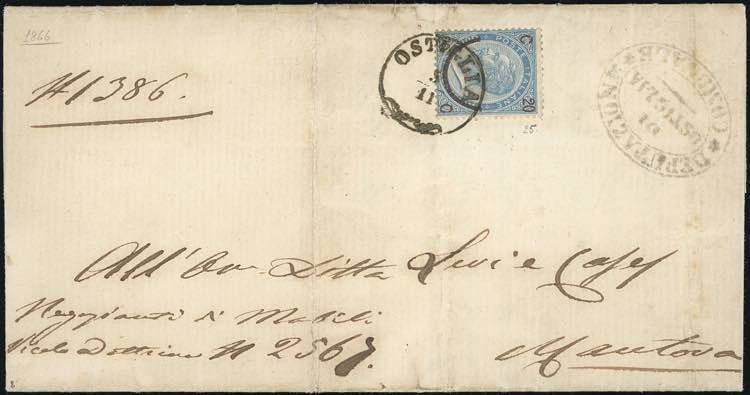 1866
N 1386.
OSTIGLIA
11
POSTE ITALIANE
C 20
C 20
25.
DEPUTAZIONE COMUNALE
DI
OSTIGLIA
All' On. Ditta Levi e
Negozianti di Mobili
Vicolo N 2567.
Mantova